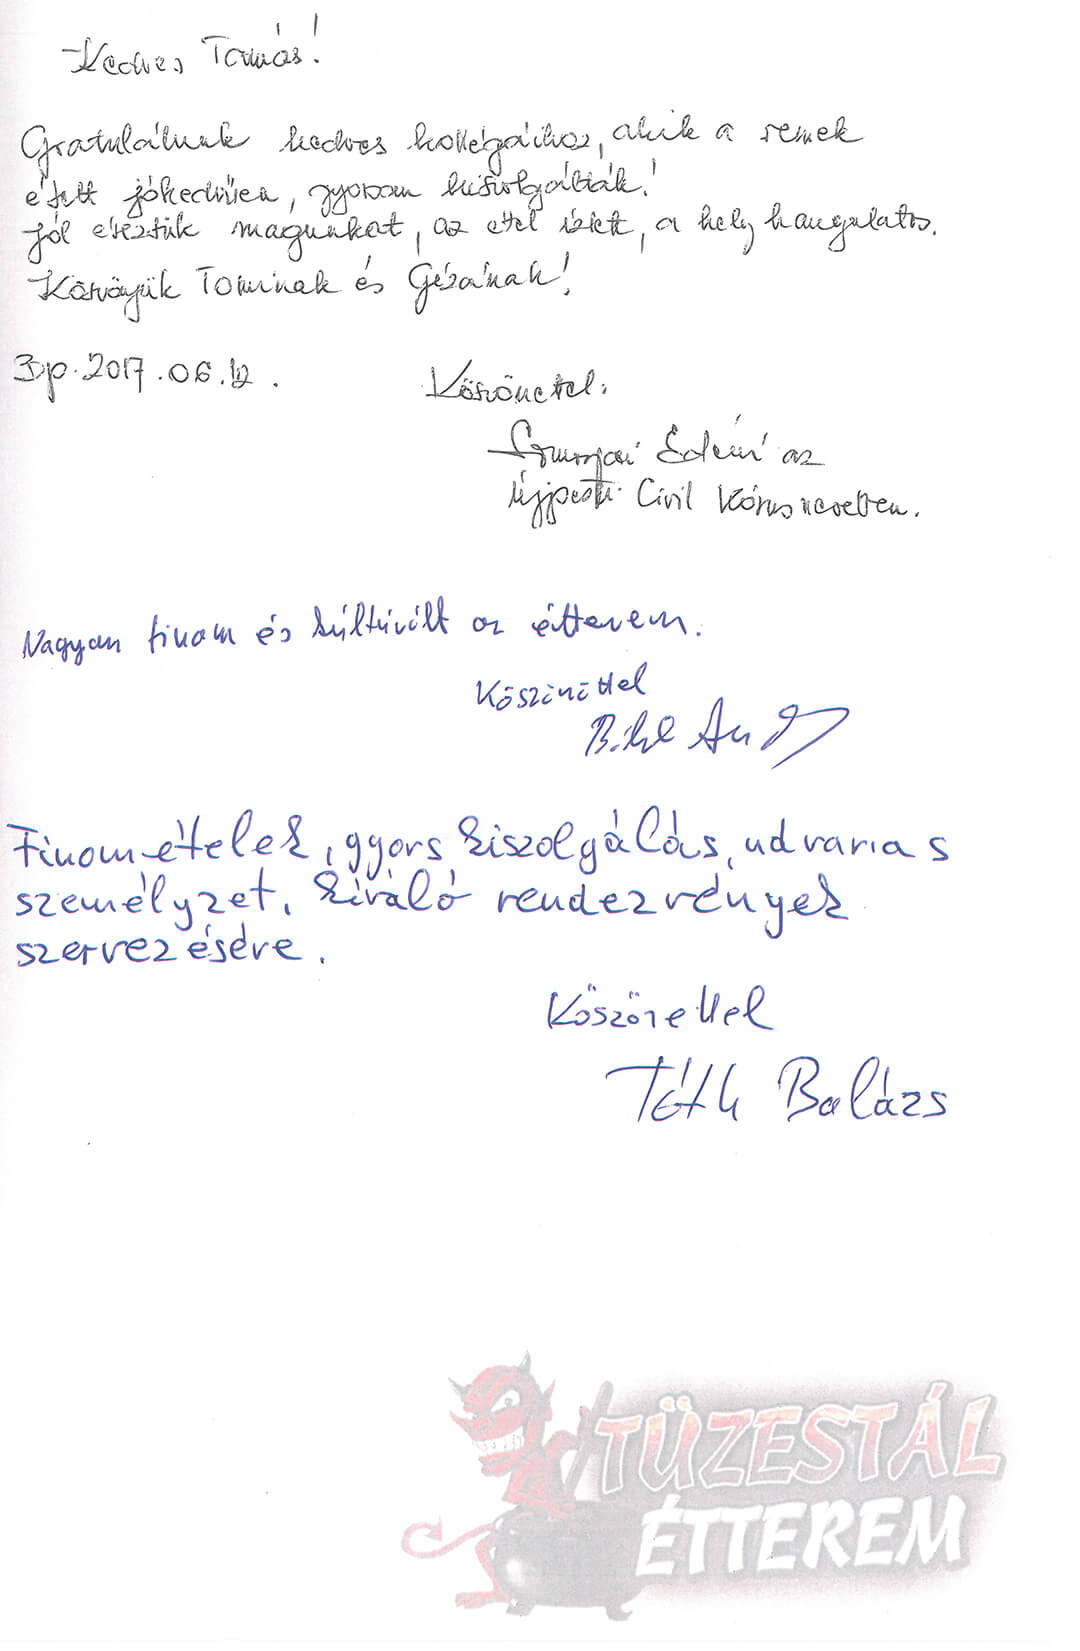 Kedves Tamás!
Gratulálunk kedves kollégáihoz, akik a remek
ételt jókedvűen, gyorsan kiszolgálták!
Jól éreztük magunkat, az étel ízlett, a hely hangulatos.
Köszönjük Tominak és Gézának!
Bp. 2017.06.12.
Köszönettel:
az
Újpesti Civil Kórus nevében.
Nagyan finom és kúltúrált az étterem.
Köszinettel
Finom ételek, gyors kiszolgálás, udvarias
személyzet. Kiváló rendezvények
szervezésére.
Köszönettel
Tóth Balázs
TÜZESTÁL
ÉTTEREM